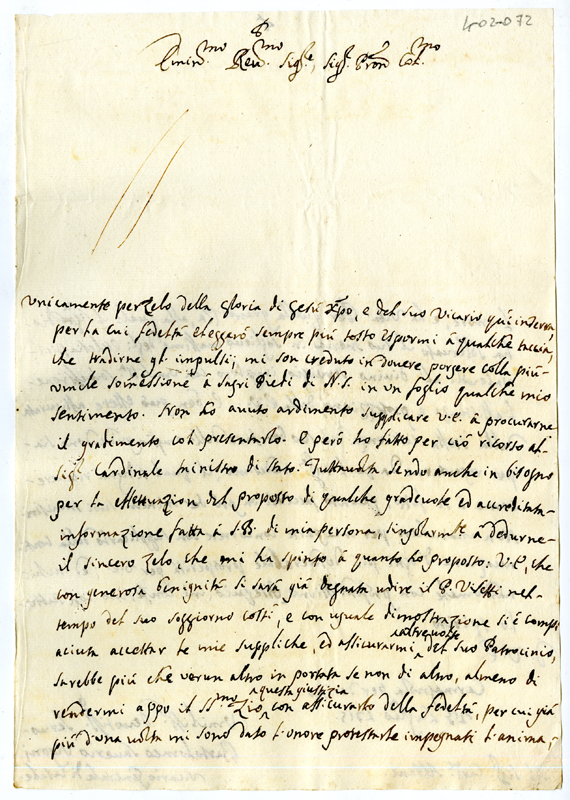 402-072
Emin.mo e Rev.mo Sig.re, Sig.r Pron Col.mo
Unicamente per zelo della gloria di Gesù Xpo, e del suo Vicario quì in terra,
per la cui fedeltà eleggerò sempre più tosto espormi à qualche taccia,
che tradirne gl'impulsi; mi son creduto in dovere porgere colla più
umile somessione à Sagri Piedi di N.S. in un foglio qualche mio
sentimento. Non ho avuto ardimento supplicare V.E. à procurarne
il gradimento col presentarlo. E però ho fatto per ciò ricorso al
Sig.r Cardinale ministro di stato. Tuttavolta sendo anche in bisogno
per la effettuazion del proposto di qualche gradevole ed accreditata
informazione fatta à S.B. di mia persona, singolarm.te à dedurne
il sincero zelo, che mi ha spinto à quanto ho proposto: V.E. che
con generosa benignità si sarà già degnata udire il P. Visetti nel
tempo del suo soggiorno costì, e con uguale dimostrazione si è compi
aciuta accettar le mie suppliche, ed assicurarmi altrevolte del suo Patrocinio,
sarebbe più che verun altro in portata se non di altro, almeno di
rendermi appo il SS.mo Zio questa giustizia con assicurarlo della fedeltà, per cui già
più d'una volta mi sono dato l'onore protestarle impegnati l'anima,